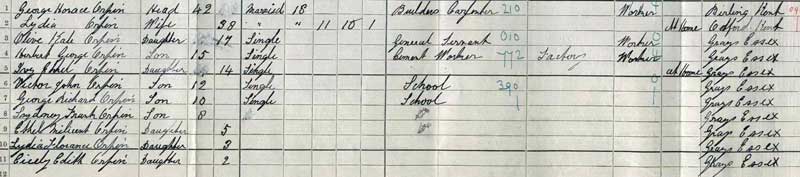 1 George Horace Orpin Head 42 Married 18 Builders Carpenter 210 Worker Birling Kent
2 Lydia Orpin Wife 38 " " 11 10 1 At Home Kent
3 Olive Orpin Daughter 17 Single General Servant 010 Worker Grays Essex
4 George Orpin Son 15 Single Cement Worker 772 Factory Worker Grays Essex
5 Ivy Orpin Daughter 14 Single At Home Grays Essex
6 Victor John Orpin Son 12 Single School 390 Grays Essex
7 George Richard Orpin Son 10 Single School Grays Essex
8 Sydney Frank Orpin Son 8 Grays Essex
9 Ethel Melicent Orpin Daughter 5 Grays Essex
10 Lydia Florance Orpin Daughter 3 Grays Essex
11 Cicely Edith Orpin Daughter 2 Grays Essex
12